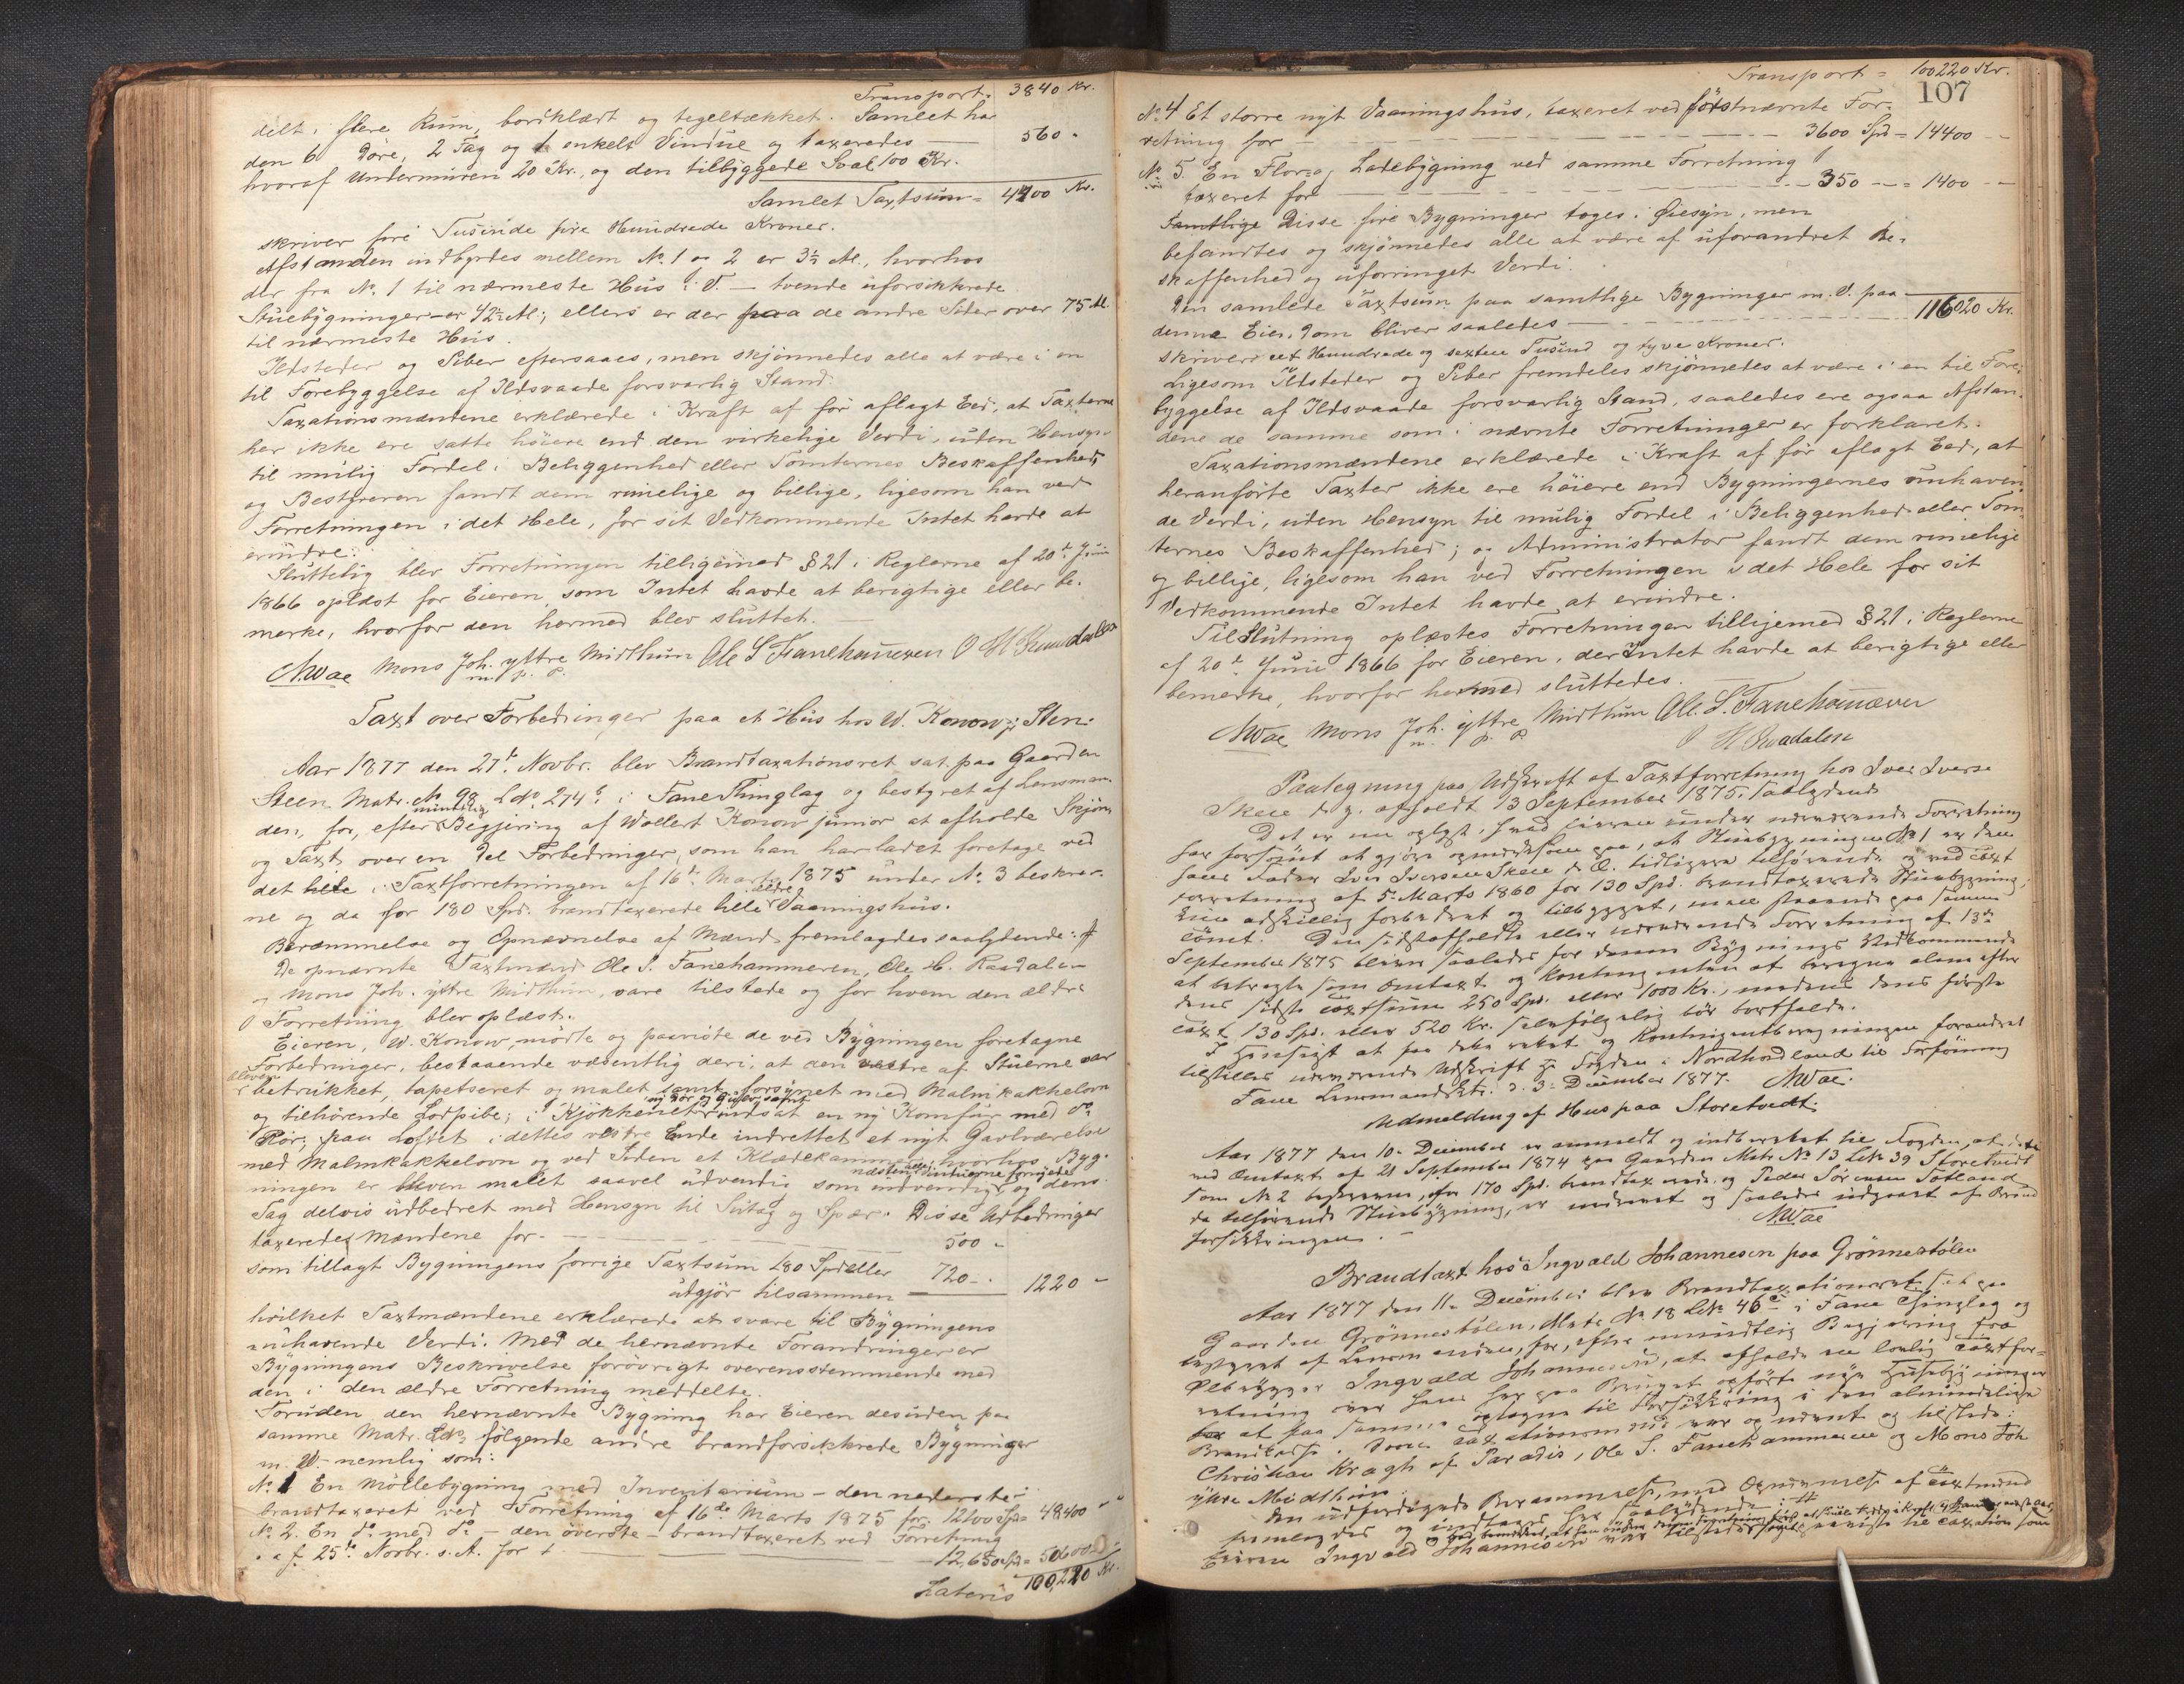 Transport. 3840 Kr.
delt i flere Rum, bordklædt og tegeltækket. Samlet har
den 6 Döre, 2 Fag og 1 enkelt Vindue og taxeredes — 560 "
hvoraf Undermuren 20 Kr., og den tilbyggede Sval 100 Kr.
Samlet Taxtsum = 4400 Kr.
skriver fire Tusinde fire Hundrede Kroner.
Afstanden indbyrdes mellem No. 1 og 2 er 3½ Al., hvorhos
der fra No. 1 til nærmeste Hus i V. — tvende uforsikkrede
Stuebygninger – er 42½ Al.; ellers er der paa de andre Sider over 75 Al.
til nærmeste Hus.
Ildsteder og Piber eftersaaes, men skjönnedes alle at være i en
til Forebyggelse af Ildsvaade forsvarlig Stand.
Taxationsmændene erklærede i Kraft af för aflagt Eed, at Taxterne
her ikke ere satte höiere end den virkelige Verdi, uden Hensyn
til mulig Fordel i Beliggenhed eller Tomternes Beskaffenhed,
og Bestyreren fandt dem rimelige og billige, ligesom han ved
Forretningen i det Hele, for sit Vedkommende Intet havde at
erindre.
Sluttelig blev Forretningen tilligemed § 21 i Reglerne af 20de Juni
1866 oplæst for Eieren, som Intet havde at berigtige eller be-
merke, hvorfor den hermed blev sluttet. —
AWae Mons Joh. yttre Midthun Ole S Fanehammeren O H Raadalen
m. p. P.
Taxt over Forbedringer paa et Hus hos W. Konow jr. Sten.
Aar 1877 den 27de Novbr. blev Brandtaxationsret sat paa Gaarden
Steen Matr. No 98 L.No. 274 i Fane Thinglag og bestyret af Lensman-
den, for, efter mundtlig Begjæring af Wollert Konow junior at afholde Skjön
og Taxt over en Del Forbedringer, som han har ladet foretage ved
det hele i Taxtforretningen af 16de Marts 1875 under No. 3 beskrev-
ne og da for 180 Spd. brandtaxerede lille ældre Vaaningshus.
Berammelse og Opnævnelse af Mænd fremlagdes saalydende: #
De opnævnte Taxtmænd Ole S. Fanehammeren, Ole H. Raadalen
og Mons Joh. yttre Midthun, vare tilstede og for hvem den ældre
Forretning blev oplæst.
Eieren, W. Konow, mödte og paaviste de ved Bygningen foretagne
Forbedringer, bestaaende væsentlig deri, at den vestre af Stuerne var
bleven betrukket, tapetseret og malet samt forsynet med Malmkakkelovn
og tilhörende Lodpibe; i Kjökkenet ny Dör og Gulv samt indsat en ny Komfur med do
Rör; paa Loftet i dettes vestre Ende indrettet et nyt Gavlværelse
med Malmkakkelovn og ved Siden et Klædekammer, hvorhos Byg-
ningen er bleven malet saavel udvendig som indvendig, næsten alle Vinduerne fornyede og dens
Tag delvis udbedret med Hensyn til Sutag og Spær. Disse Udbedringer
taxeredes Mændene for. — 500 "
som tillagt Bygningens forrige Taxtsum 180 Spd eller 720 "
udgjör tilsammen — 1220 "
hvilket Taxtmændene erklærede at svare til Bygningens
inehavende Verdi. Med de hernævnte Forandringer er
Bygningens Beskrivelse forövrigt overensstemmende med
den i den ældre Forretning meddelte.
Foruden den hernævnte Bygning har Eieren desuden paa
samme Matr. LNo. fölgende andre brandforsikkrede Bygninger
m. V. nemlig som:
No. 1 En Möllebygning med Inventarium – den nederste –
brandtaxeret ved Forretning af 16de Marts 1875 for. 12100 Spd = 48400 " "
No. 2. En do med do – den överste – brandtaxeret ved Forretning
af 25de Novbr. s. A. for — 12,650 Spd = 50600 "
Lateris 100,220 Kr.
Transport = 100220 Kr.
107
No. 4 Et större nyt Vaaningshus, taxeret ved förstnævnte For-
retning for — 3600 Spd = 14400 —
No. 5. En Flor og Ladebygning ved samme Forretning
taxeret for — 350 — = 1400 —
Samtlige Disse fire Bygninger toges i Öiesyn, men
befandtes og skjönnedes alle at være af uforandret Be-
skaffenhed og uforringet Verdi.
Den samlede Taxtsum paa samtlige Bygninger m. V. paa
denne Eiendom bliver saaledes — 116020 Kr.
skriver eet Hundrede og sexten Tusind og tyve Kroner.
Ligesom Ildsteder og Piber fremdeles skjönnedes at være i en til Fore-
byggelse af Ildsvaade forsvarlig Stand, saaledes ere ogsaa Afstan-
dene de samme som i nævnte Forretninger er forklaret.
Taxationsmændene erklærede i Kraft af för aflagt Eed, at
heranförte Taxter ikke ere höiere end Bygningernes inehaven-
de Verdi, uden Hensyn til mulig Fordel i Beliggenhed eller Tom-
ternes Beskaffenhed; og Administrator fandt dem rimelige
og billige, ligesom han ved Forretningen i det Hele for sit
Vedkommende Intet havde at erindre.
Til Slutning oplæstes Forretningen tilligemed § 21 i Reglerne
af 20de Juni 1866 for Eieren, der Intet havde at berigtige eller
bemerke, hvorfor hermed sluttedes. —
AWae Mons Joh. yttre Midthun Ole. S. Fanehammeren
m. p. P. O H Raadalen
Paategning paa Udskrift af Taxtforretning hos Iver Iversen
Skeie d. y. afholdt 13 September 1875, saalydende
Det er nu oplyst, hvad Eieren under nærværende Forretning
har forsömt at gjöre opmerksom paa, at Stuebygningen No 1 er den
hans Fader Iver Iversen Skeie d. Æ. tidligere tilhörende og ved Taxt
forretning af 5 Marts 1860 for 130 Spd. brandtaxerede Stuebygning;
kun adskillig forbedret og tilbygget, men staaende paa samme
Tomt. Den sidstafholdte eller nærværende Forretning af 13de
September 1875 bliver saaledes for denne Bygnings Vedkommende
at betragte som Omtaxt og Kontingenten at beregne alene efter
dens sidste Taxtsum 250 Spd. eller 1000 Kr., medens dens förste
Taxt 130 Spd. eller 520 Kr. selvfölgelig bör bortfalde.
I Henseigt at faa dette rettet og Kontingentberegningen forandret
tilstilles nærværende Udskrift Hr Fogden i Nordhordland til Forföining
Fane Lensmandskt. d. 3 December 1877. AWae.
Udmelding af Hus paa Storetvedt.
Aar 1877 den 10. December er anmeldt og indberettet til Fogden, at det
ved Omtaxt af 21 September 1874 paa Gaarden Matr No 13 LNo 39 Storetvedt
som No 2 beskrevne, for 170 Spd. brandtaxerede og Peder Sörensen Totland
da tilhörende Stuebygning, er nedrevet og saaledes udgaaet af Brand
forsikkringen. —
AWae
Brandtaxt hos Ingvald Johannesen paa Grönnestölen
Aar 1877 den 11. December blev Brandtaxationsret sat paa
Gaarden Grönnestölen, Matr No 18 LNo 46 i Fane Thinglag og
bestyret af Lensmanden, for, efter mundtlig Begjæring fra
Ölbrygger Ingvald Johannesen, at afholde en lovlig Taxtfor-
retning over hans her paa Bruget opförte nye Husebygninger
for at faa samme optagne til Forsikkring i den almindelige
Brandkasse. Som Taxationsmænd var opnævnt og tilstede:
Christian Kragh af Paradis, Ole S. Fanehammeren og Mons Joh
yttre Midthun.
Den udfærdigede Berammelse, med Opnævnelse af Taxtmænd
fremlagdes og indtages her saalydende: #
Eieren Ingvald Johannesen var tilstede